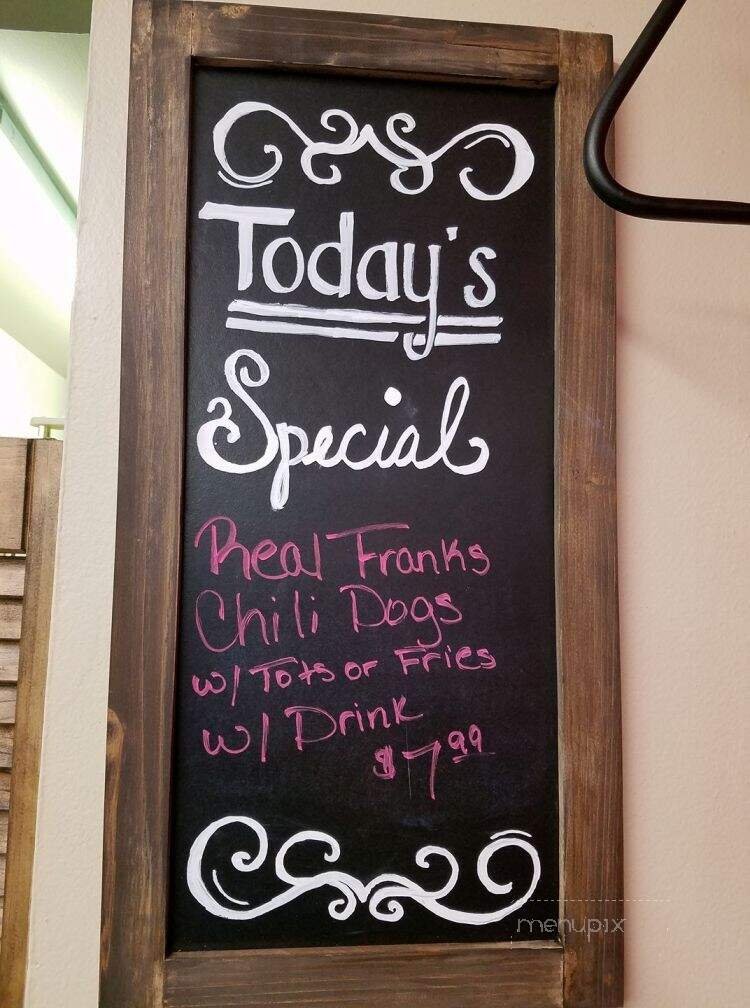 Today's
Special
Real Franks
Chili Dogs
w/ Tots or Fries
w/ Drink
$7.99
menupix